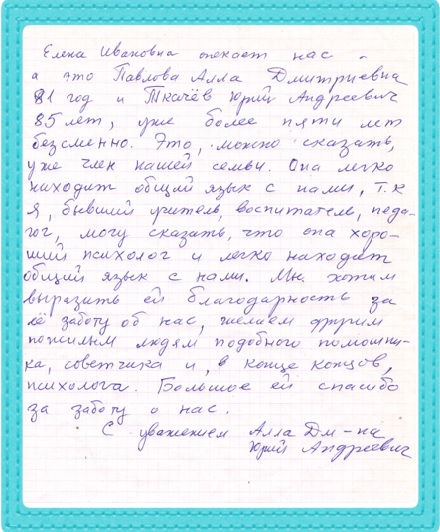 Елена Ивановна опекает нас -
а это Павлова Алла Дмитриевна
81 год и Ткачёв Юрий Андреевич
85 лет, уже более пяти лет
безсменно. Это, можно сказать,
уже член нашей семьи. Она легко
находит общий язык с нами, т.к
я, бывший учитель, воспитатель, педа-
гог, могу сказать, что она хоро-
ший психолог и легко находит
общий язык с нами. Мы хотим
выразить ей благодарность за
её заботу об нас, желаем другим
пожилым людям подобного помошни-
ка, советчика и, в конце концов,
психолога. Большое ей спасибо
за заботу о нас.
С уважением Алла Дм-на
Юрий Андреевич